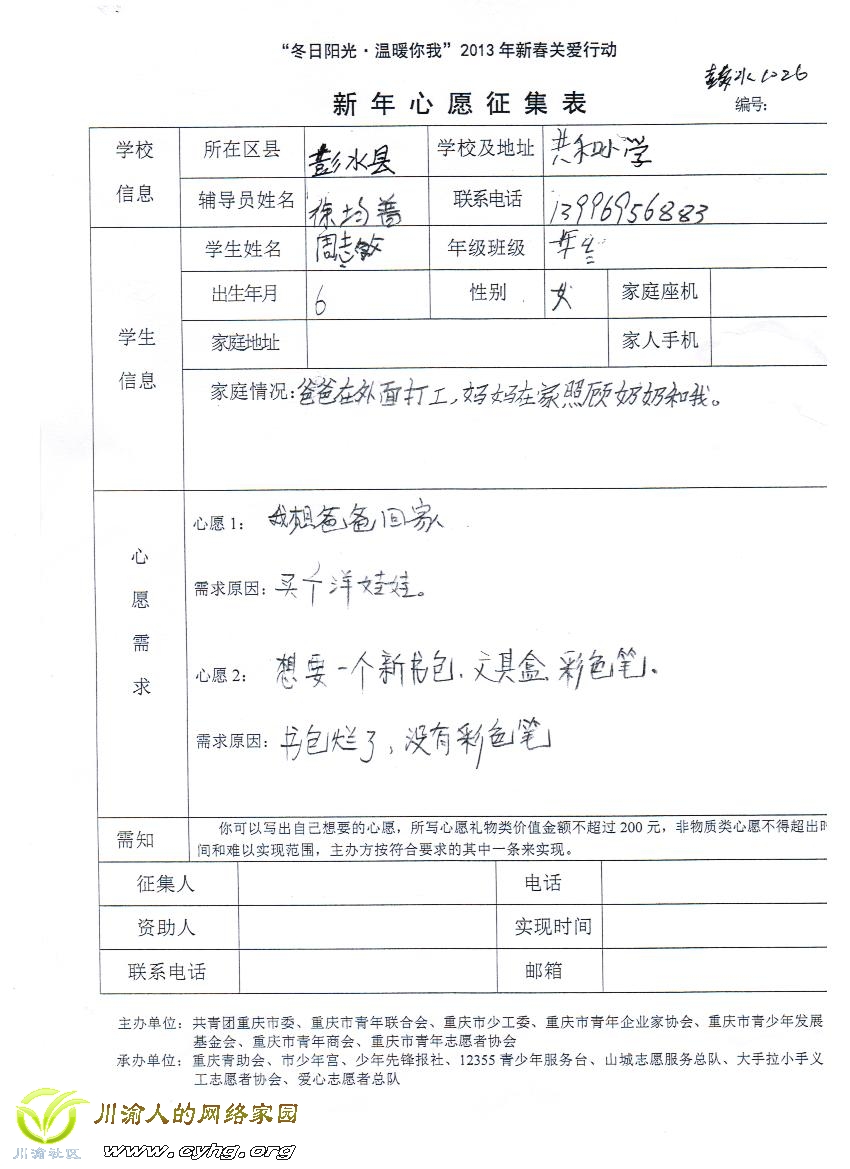 “冬日阳光·温暖你我”2013年新春关爱行动
彭水1026
新年心愿征集表 编号：
学校信息 所在区县 彭水县 学校及地址 共和小学
辅导员姓名 徐均 联系电话 13996956883
学生信息 学生姓名 周志敏 年级班级
出生年月 6 性别 女 家庭座机
家庭地址 家人手机
家庭情况：爸爸在外面打工，妈妈在家照顾奶奶和我。
心愿需求
心愿1： 我想爸爸回家
需求原因：买个洋娃娃。
心愿2： 想要一个新书包、文具盒、彩色笔。
需求原因：书包烂了，没有彩色笔
需知 你可以写出自己想要的心愿，所写心愿礼物类价值金额不超过200元，非物质类心愿不得超出时
间和难以实现范围，主办方按符合要求的其中一条来实现。
征集人 电话
资助人 实现时间
联系电话 邮箱
主办单位：共青团重庆市委、重庆市青年联合会、重庆市少工委、重庆市青年企业家协会、重庆市青少年发展
基金会、重庆市青年商会、重庆市青年志愿者协会
承办单位：重庆青助会、市少年宫、少年先锋报社、12355青少年服务台、山城志愿服务总队、大手拉小手义
工志愿者协会、爱心志愿者总队
川渝人的网络家园
川渝社区 www.cyhg.org